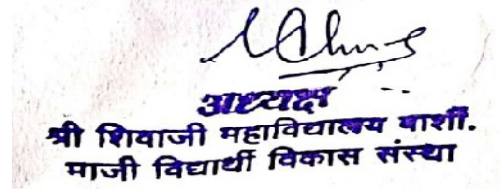 अध्यक्ष
श्री शिवाजी महाविद्यालय बार्शी.
माजी विद्यार्थी विकास संस्था